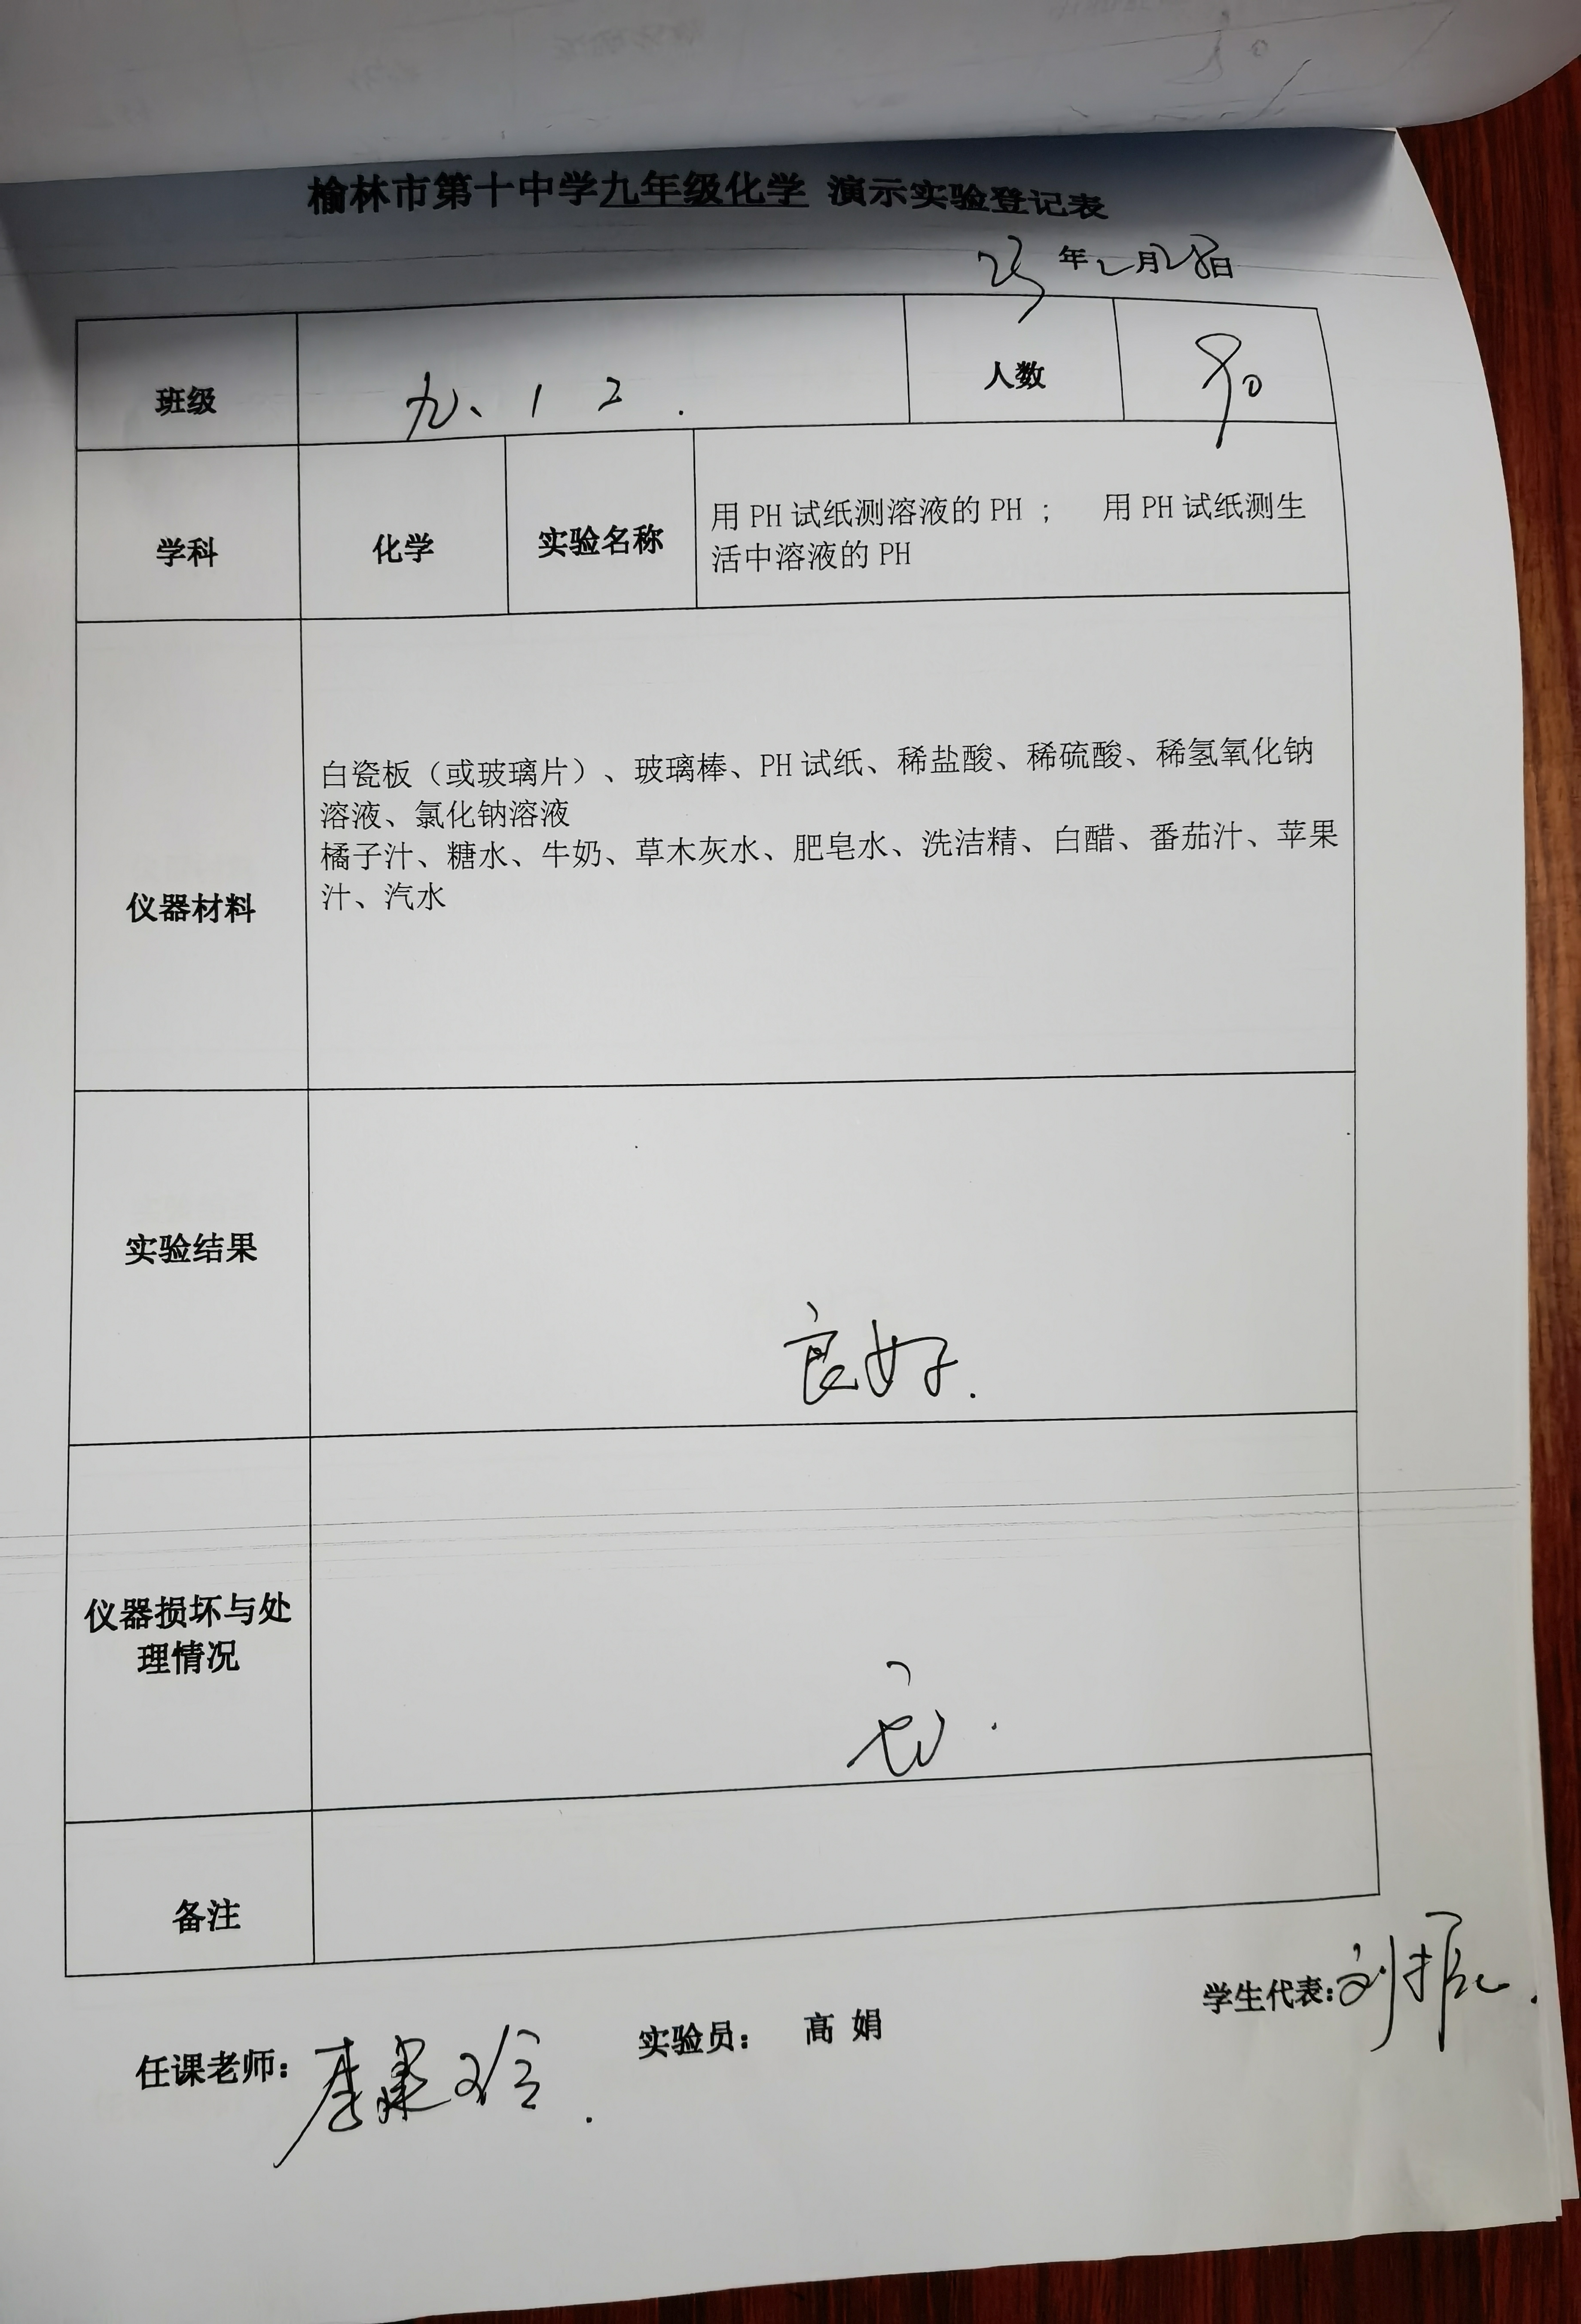 榆林市第十中学九年级化学 演示实验登记表
23年2月28日
班级
九、1 2.
人数
90
学科
化学
实验名称
用PH试纸测溶液的PH； 用PH试纸测生
活中溶液的PH
仪器材料
白瓷板（或玻璃片）、玻璃棒、PH试纸、稀盐酸、稀硫酸、稀氢氧化钠
溶液、氯化钠溶液
橘子汁、糖水、牛奶、草木灰水、肥皂水、洗洁精、白醋、番茄汁、苹果
汁、汽水
实验结果
良好.
仪器损坏与处
理情况
无.
备注
任课老师：李
实验员： 高 娟
学生代表：刘振